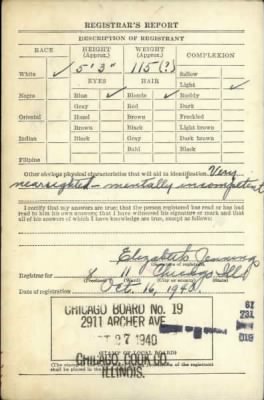 REGISTRAR'S REPORT
DESCRIPTION OF REGISTRANT
RACE HEIGHT (Approx.) WEIGHT (Approx.) COMPLEXION
White ✓ 5' 3" 115 (?) Sallow
EYES HAIR Light ✓
Negro Blue ✓ Blonde ✓ Ruddy
Gray Red Dark
Oriental Hazel Brown Freckled
Brown Black Light brown
Indian Black Gray Dark brown
Bald Black
Filipino
Other obvious physical characteristics that will aid in identification Very
nearsighted - mentally incompetent
I certify that my answers are true; that the person registered has read or has
had read to him his own answers; that I have witnessed his signature or mark and that
all of his answers of which I have knowledge are true, except as follows:
Elizabeth
Registrar for 8 11 Chicago Ill
(Precinct) (Ward) (City or county) (State)
Date of registration Oct. 16, 1940
CHICAGO BOARD No. 19
2911 ARCHER AVE
27 1940
(STAMP OF LOCAL BOARD)
CHICAGO, COOK CO.
ILLINOIS.